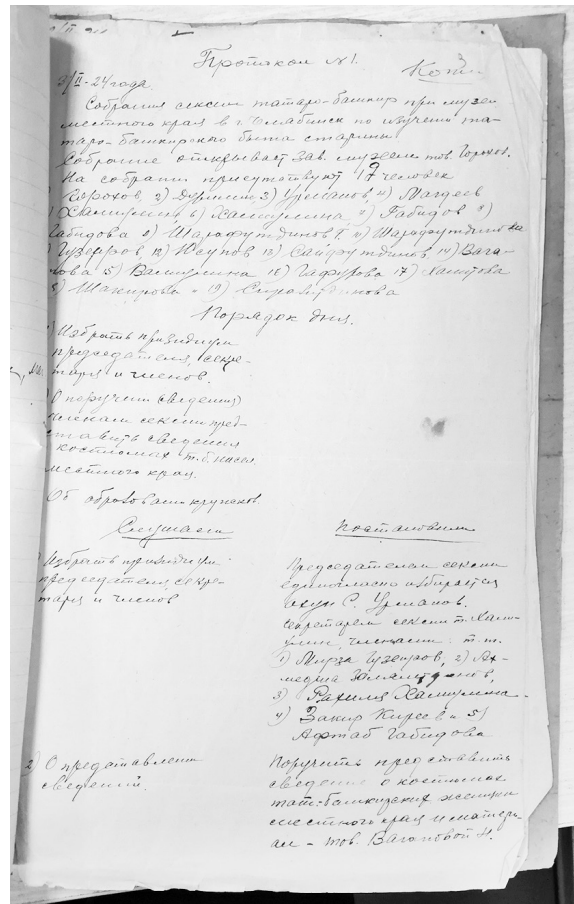 Протокол №1.
Копия
3/II-24 года.
Собрания секции татаро-башкир при музеи
местного края в г. Челябинск по изучени та-
таро-башкирского быта старины
Собрание открывает зав. музеем тов. Горохов.
На собрани присутствуют 19 человек
Горохов, 2) Дурмин 3) Урманов, 4) Магдеев
Хамиулин 6) Хамиулина 7) Габидов 8)
Габидова 9) Шарафутдинов Г. 11) Шарафутдинова
Гузеиров, 12) Юсупов 13) Сайфутдинов, 14) Вага-
пова 15) Валиулина 16) Гафурова 17) Хамитова
Шакирова и 19) Сиразитдинова
Порядок дня.
Избрать призидиум
председателя, секре-
таря и членов.
О поручени сведения)
членам секции пред-
ставить сведения
костюмах т.б. насел.
местного края.
Об образовани кружков.
Слушали
Постановили
Избрать призидиум
председателя, секре-
таря и членов
Председателем секции
единогласно избирается
ахун С. Урманов.
Секретарем секции т. Хами-
улин, членами: т.т.
1) Мирза Гузеиров, 2) Ах-
3) Рахиля Хамиулина
4) Закир Киреев и 5)
Афтаб Габидова
2) О предоставлени
сведений.
Поручить представить
сведение о костюмах
тат.-башкирских женщин
местного края и матери-
ал - тов. Вагаповой Н.